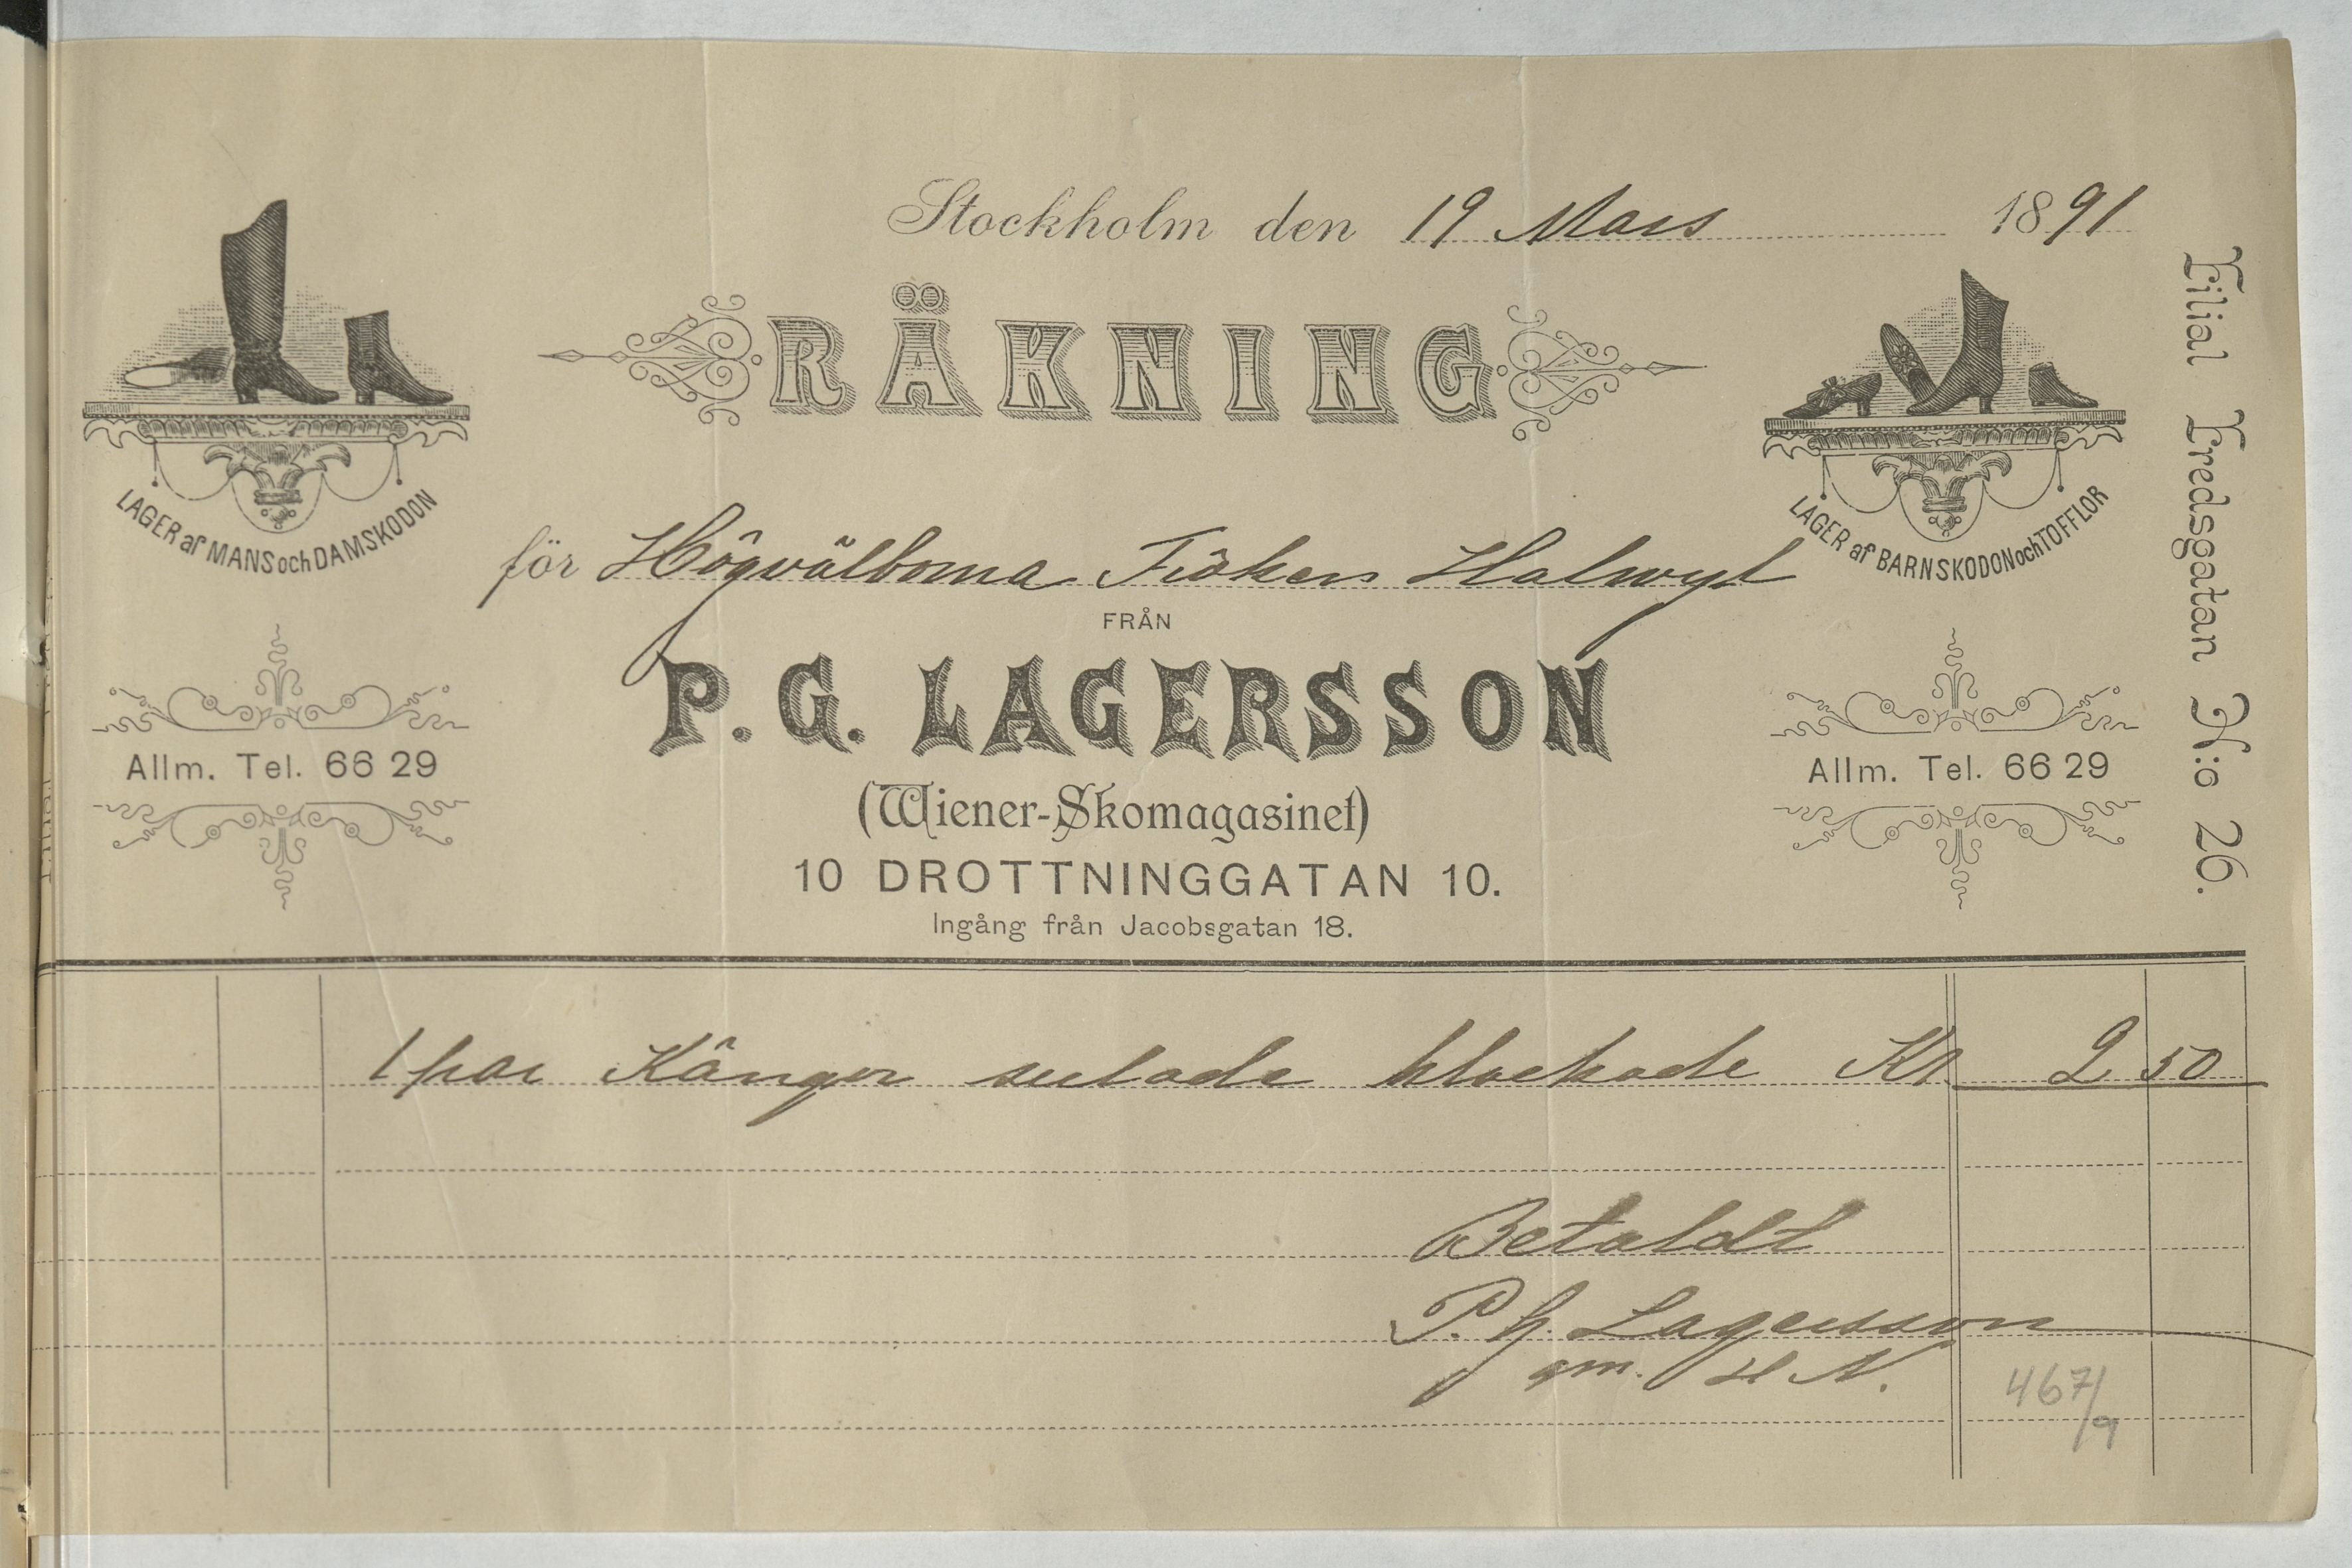 Stockholm den 19 Mars 1891
RÄKNING
LAGER af MANS och DAMSKODON
LAGER af BARNSKODON och TOFFLOR
för Högvälborna Fröken Halwyl
FRÅN
P. G. LAGERSSON
Allm. Tel. 66 29
Allm. Tel. 66 29
(Wiener-Skomagasinet)
10 DROTTNINGGATAN 10.
Ingång från Jacobsgatan 18.
Filial Fredsgatan N:o 26.
1 par Känger sulade klackade Kr 2 50
Betaldt
P. G. Lagersson
gm. H N.
467/9